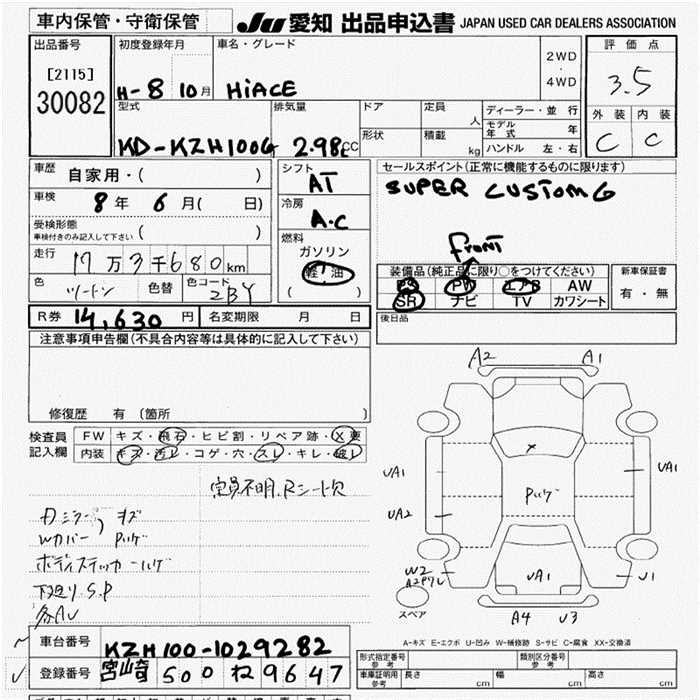 車内保管・守衛保管
JU 愛知 出品申込書 JAPAN USED CAR DEALERS ASSOCIATION
出品番号
[2115]
30082
初度登録年月
H-8 10月
車名・グレード
HiACE
2WD
・
4WD
評価点
3.5
外装 内装
C C
型式
KD-KZH100G
排気量
2.98L CC
ドア
形状
定員
人
積載
kg
ディーラー・並行
モデル年式 年
ハンドル 左・右
車歴
自家用・( )
車検
8年 6月( 日)
受検形態
車検付きのみ記入して下さい ( )
走行
17万3千680km
色
ツートン
色替
色コード
2BY
シフト
AT
冷房
A.C
燃料
ガソリン
軽油
( )
セールスポイント(正常に機能するものに限ります)
SUPER CUSTOM G
front
装備品(純正品に限り○をつけてください)
PS PW エアB AW
SR ナビ TV カワシート
新車保証書
有・無
後日品
R券 14,630円
名変期限 月 日
注意事項申告欄(不具合内容等は具体的に記入して下さい)
修復歴 有 〔箇所 〕
検査員記入欄
FW キズ・飛石・ヒビ割・リペア跡・X要
内装 キズ・汚レ・コゲ・穴・スレ・キレ・破レ
定員不明、Rシート欠
カミラー、キズ
Wカバー ハゲ
ボディステッカーハゲ
下廻りS.P
各AU
A2 A1
X
UA1 UA1
UA2
ハゲ
W2
UA1
U1
スペア
A4 U3
A-キズ E-エクボ U-凹み W-補修跡 S-サビ C-腐食 XX-交換済
車台番号
KZH100-1029282
登録番号
宮崎 500 ね 9647
形式指定番号
参考
類別区分番号
参考
車庫証明用
参考
長さ cm
幅 cm
高さ cm